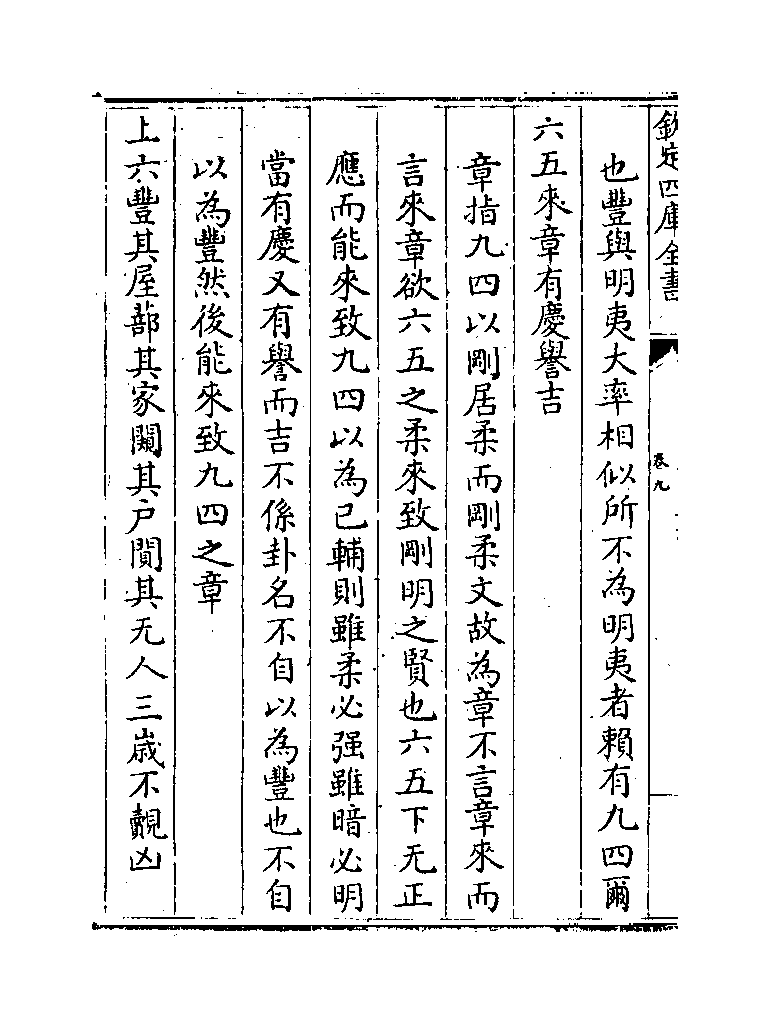 欽定四庫全書
卷九
也豐與明夷大率相似所不為明夷者賴有九四爾
六五來章有慶譽吉
章指九四以剛居柔而剛柔文故為章不言章來而
言來章欲六五之柔來致剛明之賢也六五下无正
應而能來致九四以為已輔則雖柔必强雖暗必明
當有慶又有譽而吉不係卦名不自以為豐也不自
以為豐然後能來致九四之章
上六豐其屋蔀其家闚其户闃其无人三歲不覿凶